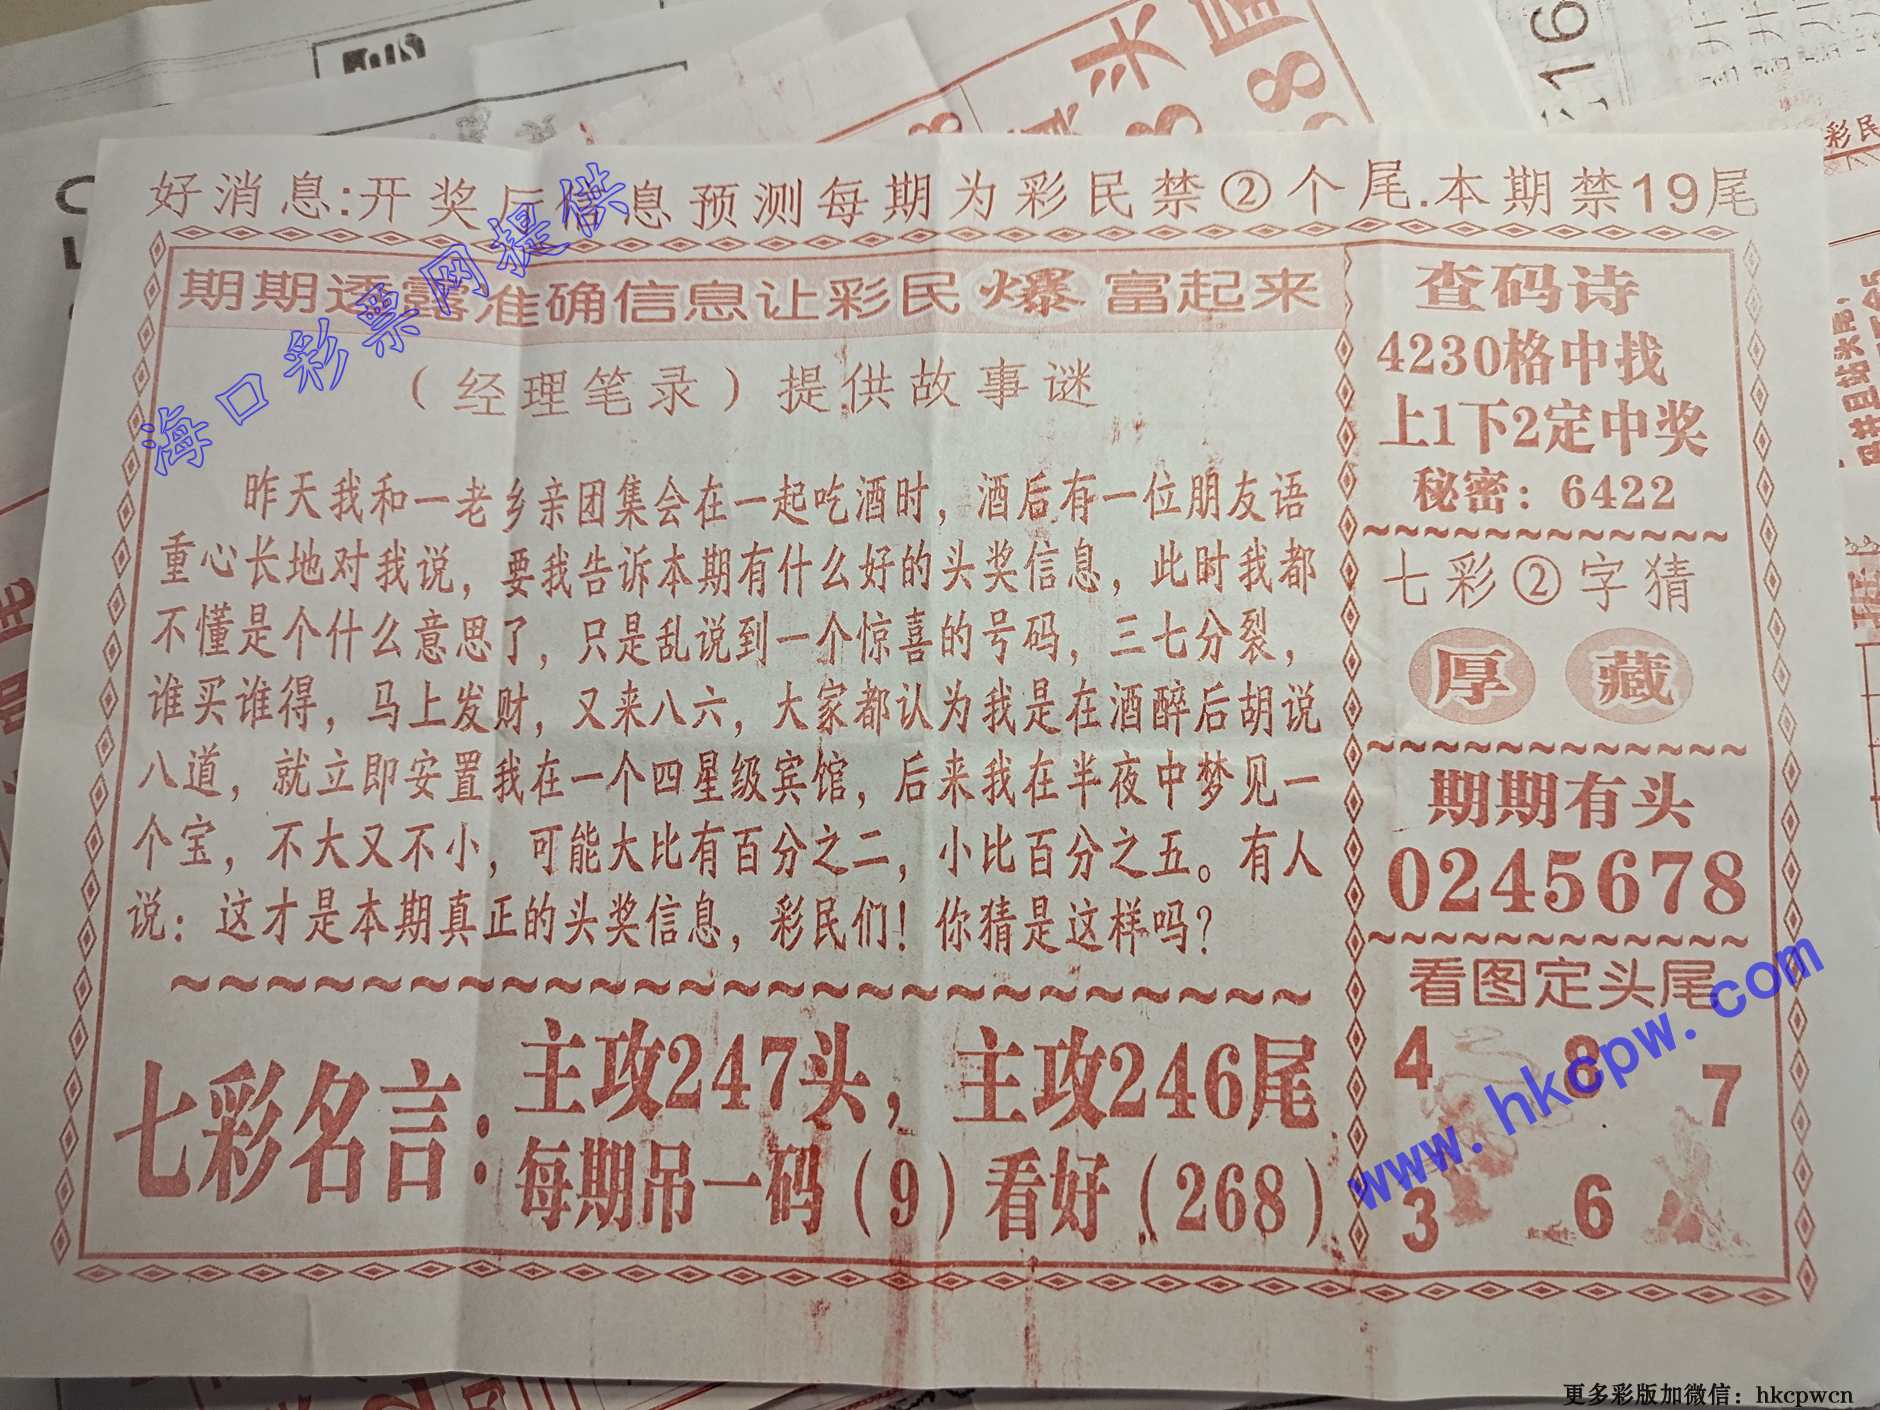 好消息:开奖厅信息预测每期为彩民禁②个尾.本期禁19尾
期期透露准确信息让彩民爆富起来
（经理笔录）提供故事谜
昨天我和一老乡亲团集会在一起吃酒时，酒后有一位朋友语
重心长地对我说，要我告诉本期有什么好的头奖信息，此时我都
不懂是个什么意思了，只是乱说到一个惊喜的号码，三七分裂，
谁买谁得，马上发财，又来八六，大家都认为我是在酒醉后胡说
八道，就立即安置我在一个四星级宾馆，后来我在半夜中梦见一
个宝，不大又不小，可能大比有百分之二，小比百分之五。有人
说：这才是本期真正的头奖信息，彩民们！你猜是这样吗？
七彩名言：
主攻247头，主攻246尾
每期吊一码（9）看好（268）
查码诗
4230格中找
上1下2定中奖
秘密：6422
七彩②字猜
厚 藏
期期有头
0245678
看图定头尾
4 8 7
3 6
海口彩票网提供
www.hkcpw.com
更多彩版加微信：hkcpwcn